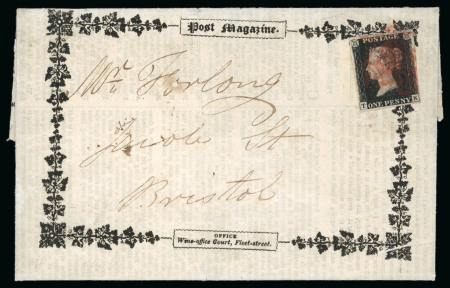 Post Magazine.
Mr. Forlong
POSTAGE
ONE PENNY
St
Bristol
OFFICE
Wine-office Court, Fleet-street.